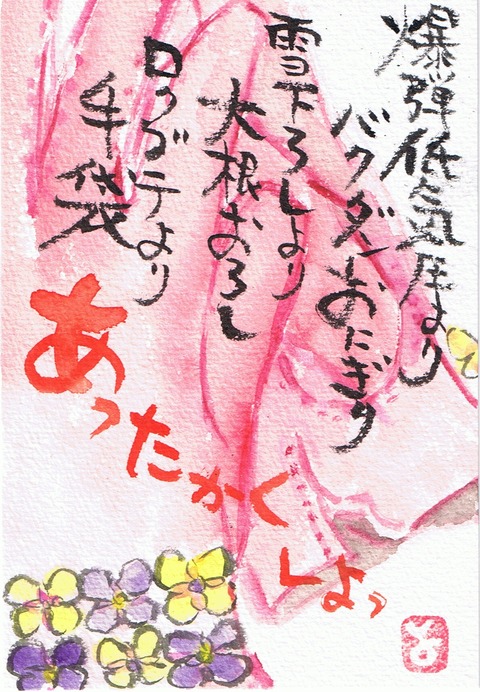 爆弾低気圧より
バクダンおにぎり
雪下ろしより
大根おろし
より
手袋
あったかく
しよっ